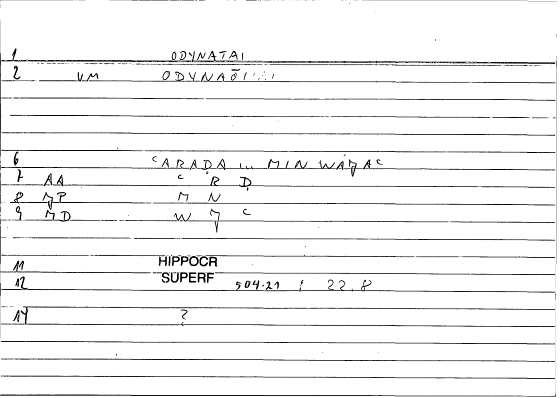 1 ODYNATAI
2 VM ODYNAŌ
6 ʿARAḌA ... MIN WAǦAʿ
7 AA ʿ R Ḍ
8 ǦP M N
9 ǦMD W Ǧ ʿ
11 HIPPOCR
12 SUPERF 504.21 ; 22.8
14 ?